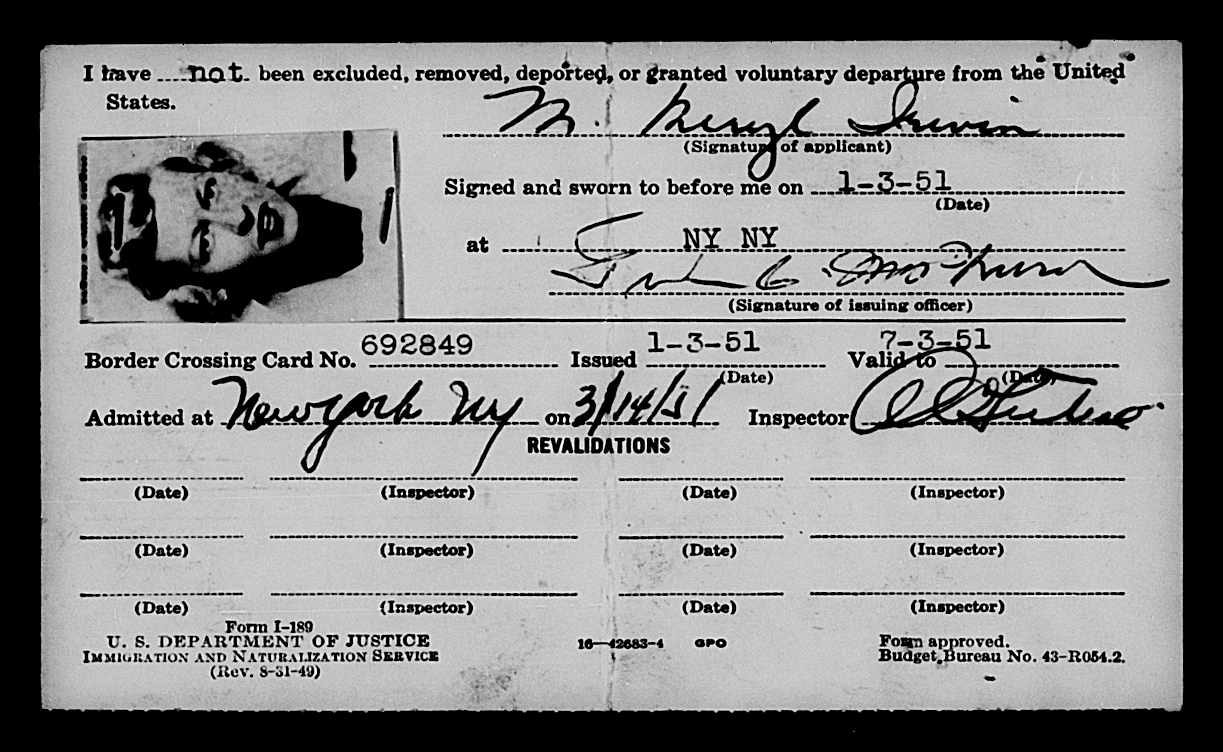 I have not been excluded, removed, deported, or granted voluntary departure from the United
States.
M. Meryl Irwin
(Signature of applicant)
Signed and sworn to before me on 1-3-51
(Date)
at NY NY
(Signature of issuing officer)
Border Crossing Card No. 692849 Issued 1-3-51 Valid to 7-3-51
(Date) (Date)
Admitted at New York NY on 3/14/51 Inspector
REVALIDATIONS
(Date) (Inspector) (Date) (Inspector)
(Date) (Inspector) (Date) (Inspector)
(Date) (Inspector) (Date) (Inspector)
Form I-189
U. S. DEPARTMENT OF JUSTICE
IMMIGRATION AND NATURALIZATION SERVICE
(Rev. 8-31-49)
16—42683-4 GPO
Form approved.
Budget Bureau No. 43-R054.2.